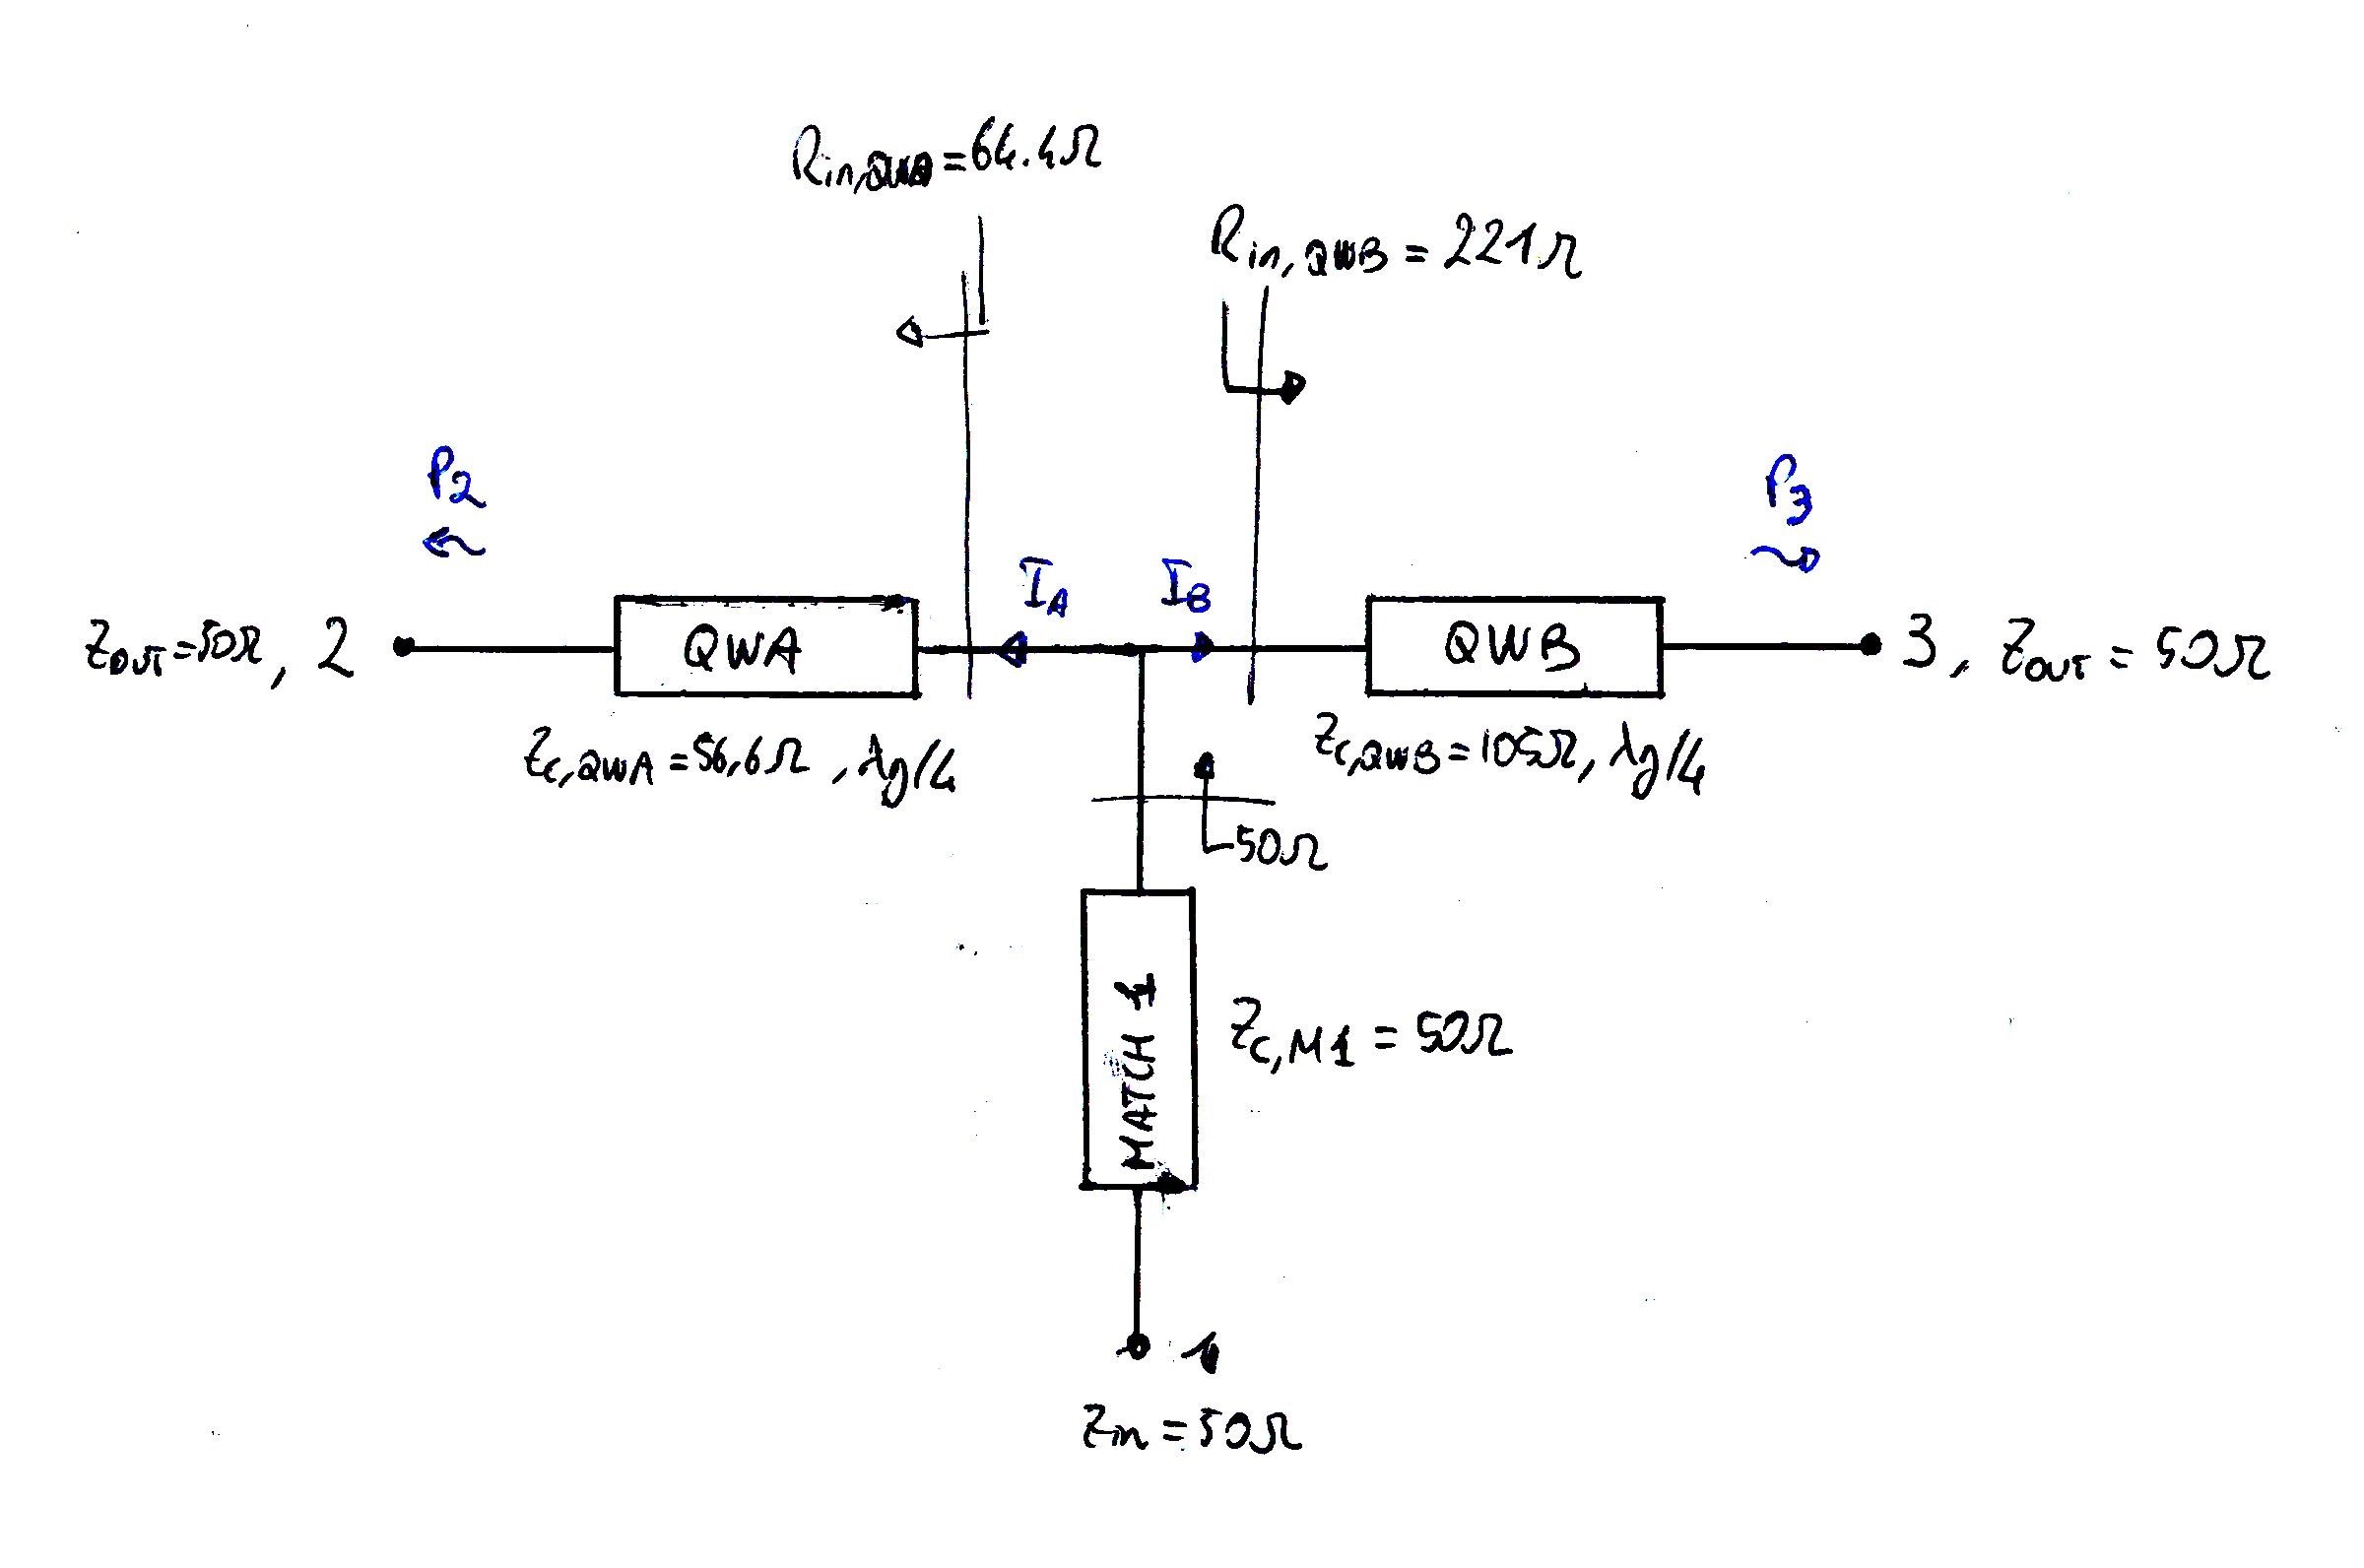 Rin,QWA = 64.4Ω
Rin, QWB = 221Ω
P2
P3
IA
IB
ZOUT = 50Ω, 2
QWA
QWB
3, ZOUT = 50Ω
Zc,QWA = 56,6Ω, λg/4
Zc,QWB = 105Ω, λg/4
50Ω
MATCH 1
Zc,M1 = 50Ω
1
Zin = 50Ω